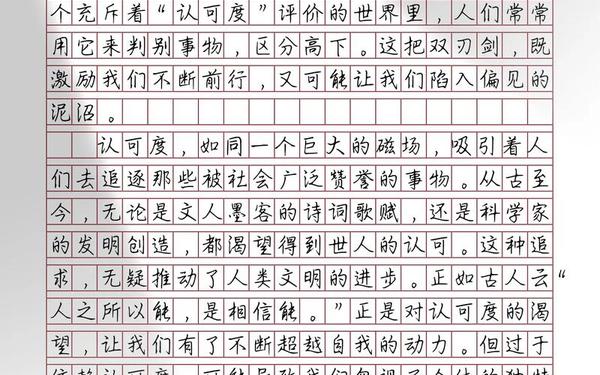 个充斥着“认可度”评价的世界里，人们常常
用它来判别事物，区分高下。这把双刃剑，既
激励我们不断前行，又可能让我们陷入偏见的
泥沼。
认可度，如同一个巨大的磁场，吸引着人
们去追逐那些被社会广泛赞誉的事物。从古至
今，无论是文人墨客的诗词歌赋，还是科学家
的发明创造，都渴望得到世人的认可。这种追
求，无疑推动了人类文明的进步。正如古人云“
人之所以能，是相信能。”正是对认可度的渴
望，让我们有了不断超越自我的动力。但过于